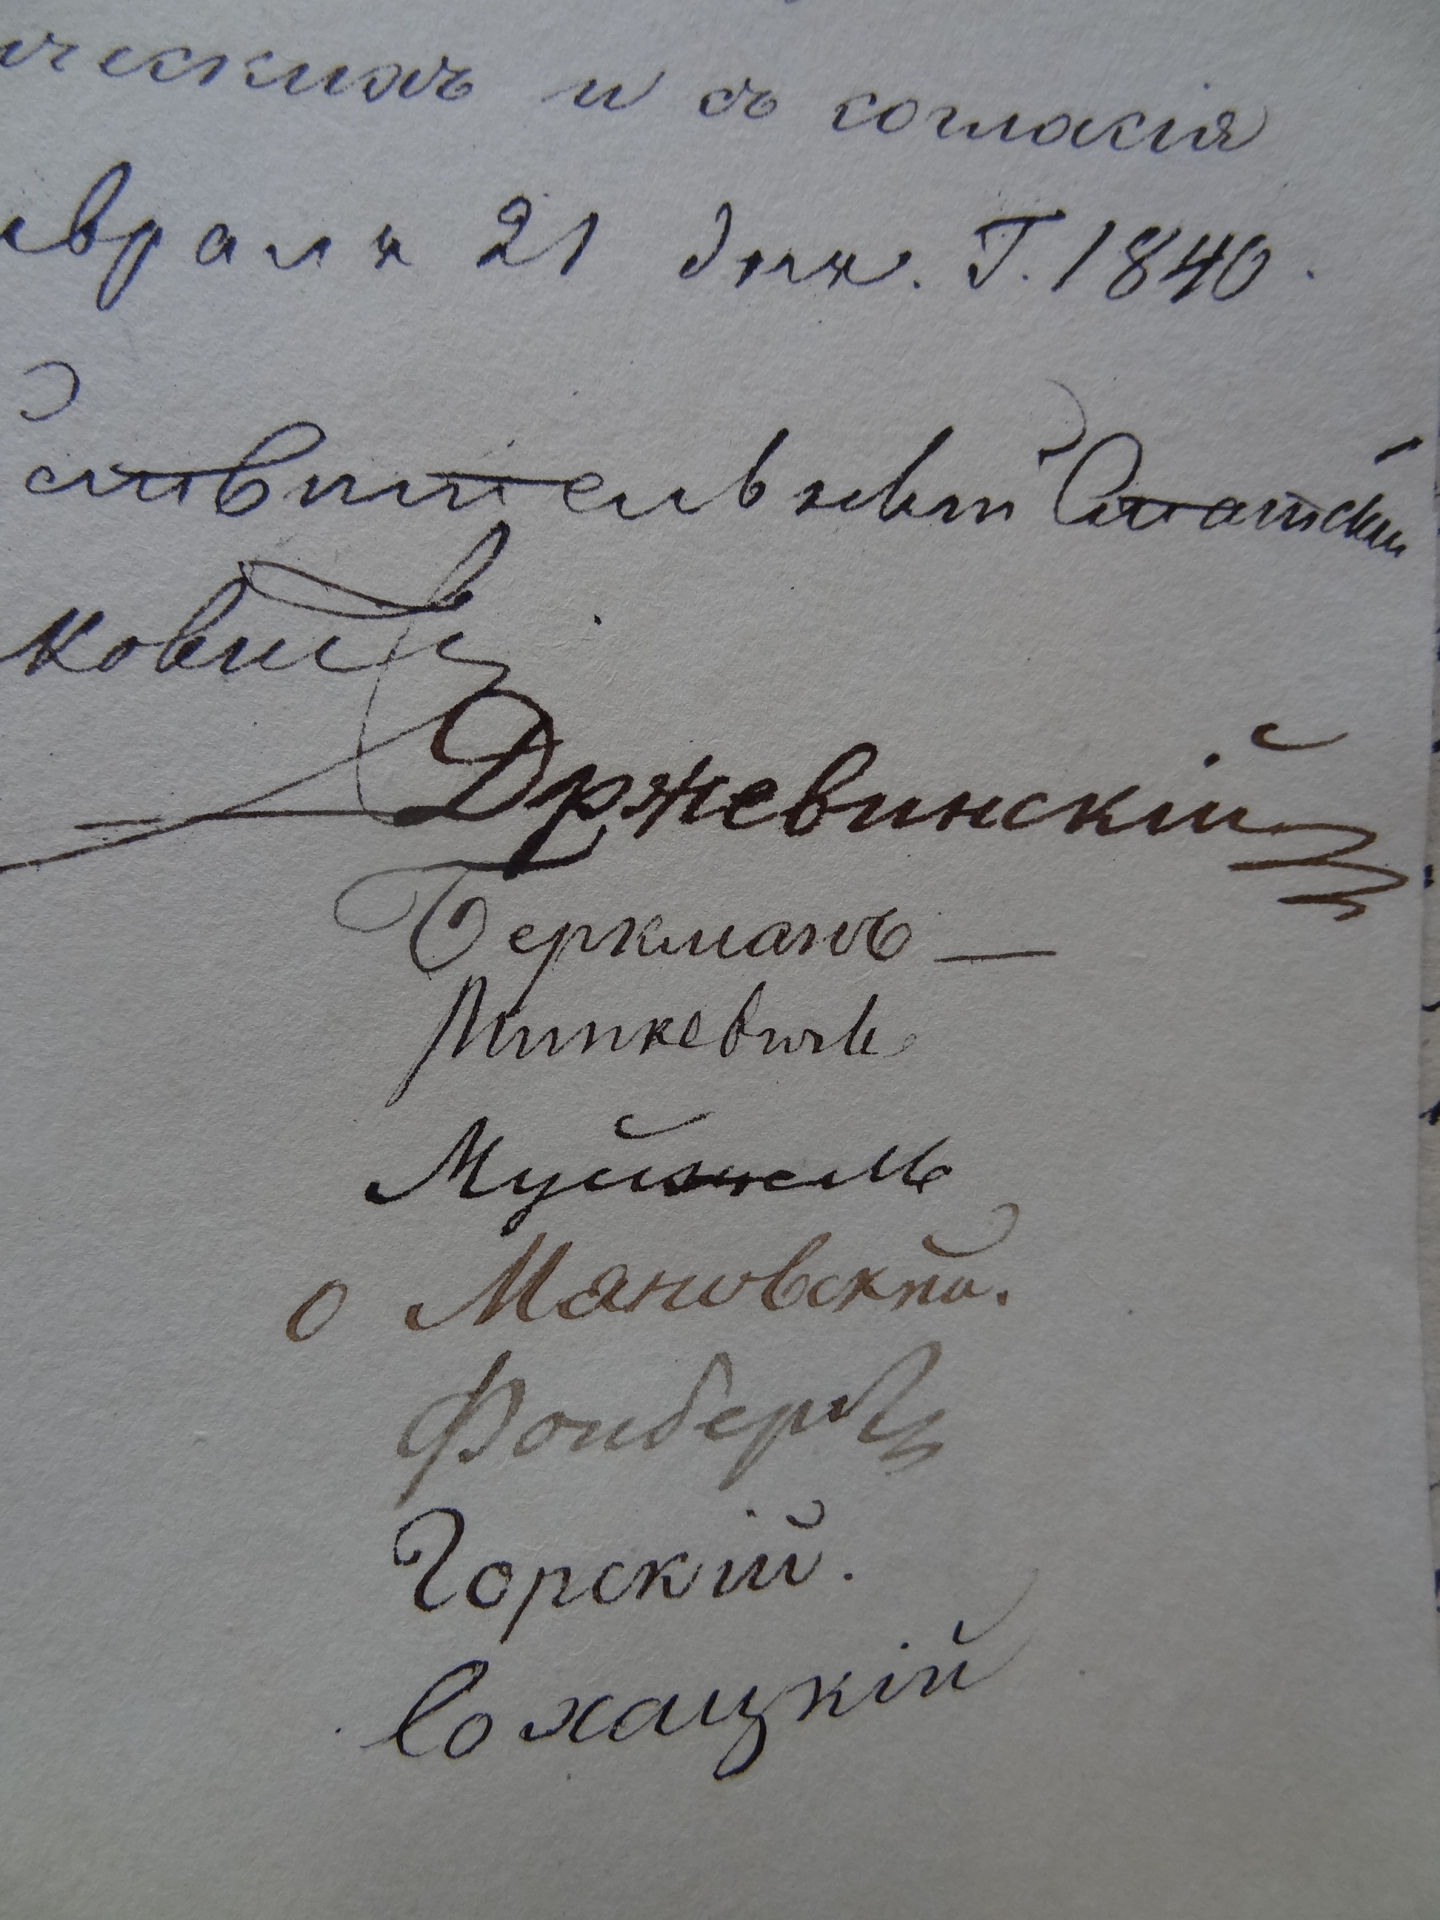 ческихъ и съ согласія
евраля 21 дня. Г. 1840.
ствительный Статский
ковичъ
Држевинскій
Беркманъ —
Мипкевичъ
Муйжель
О Мяновский.
Фонбергъ
Горскій.
Сохацкій